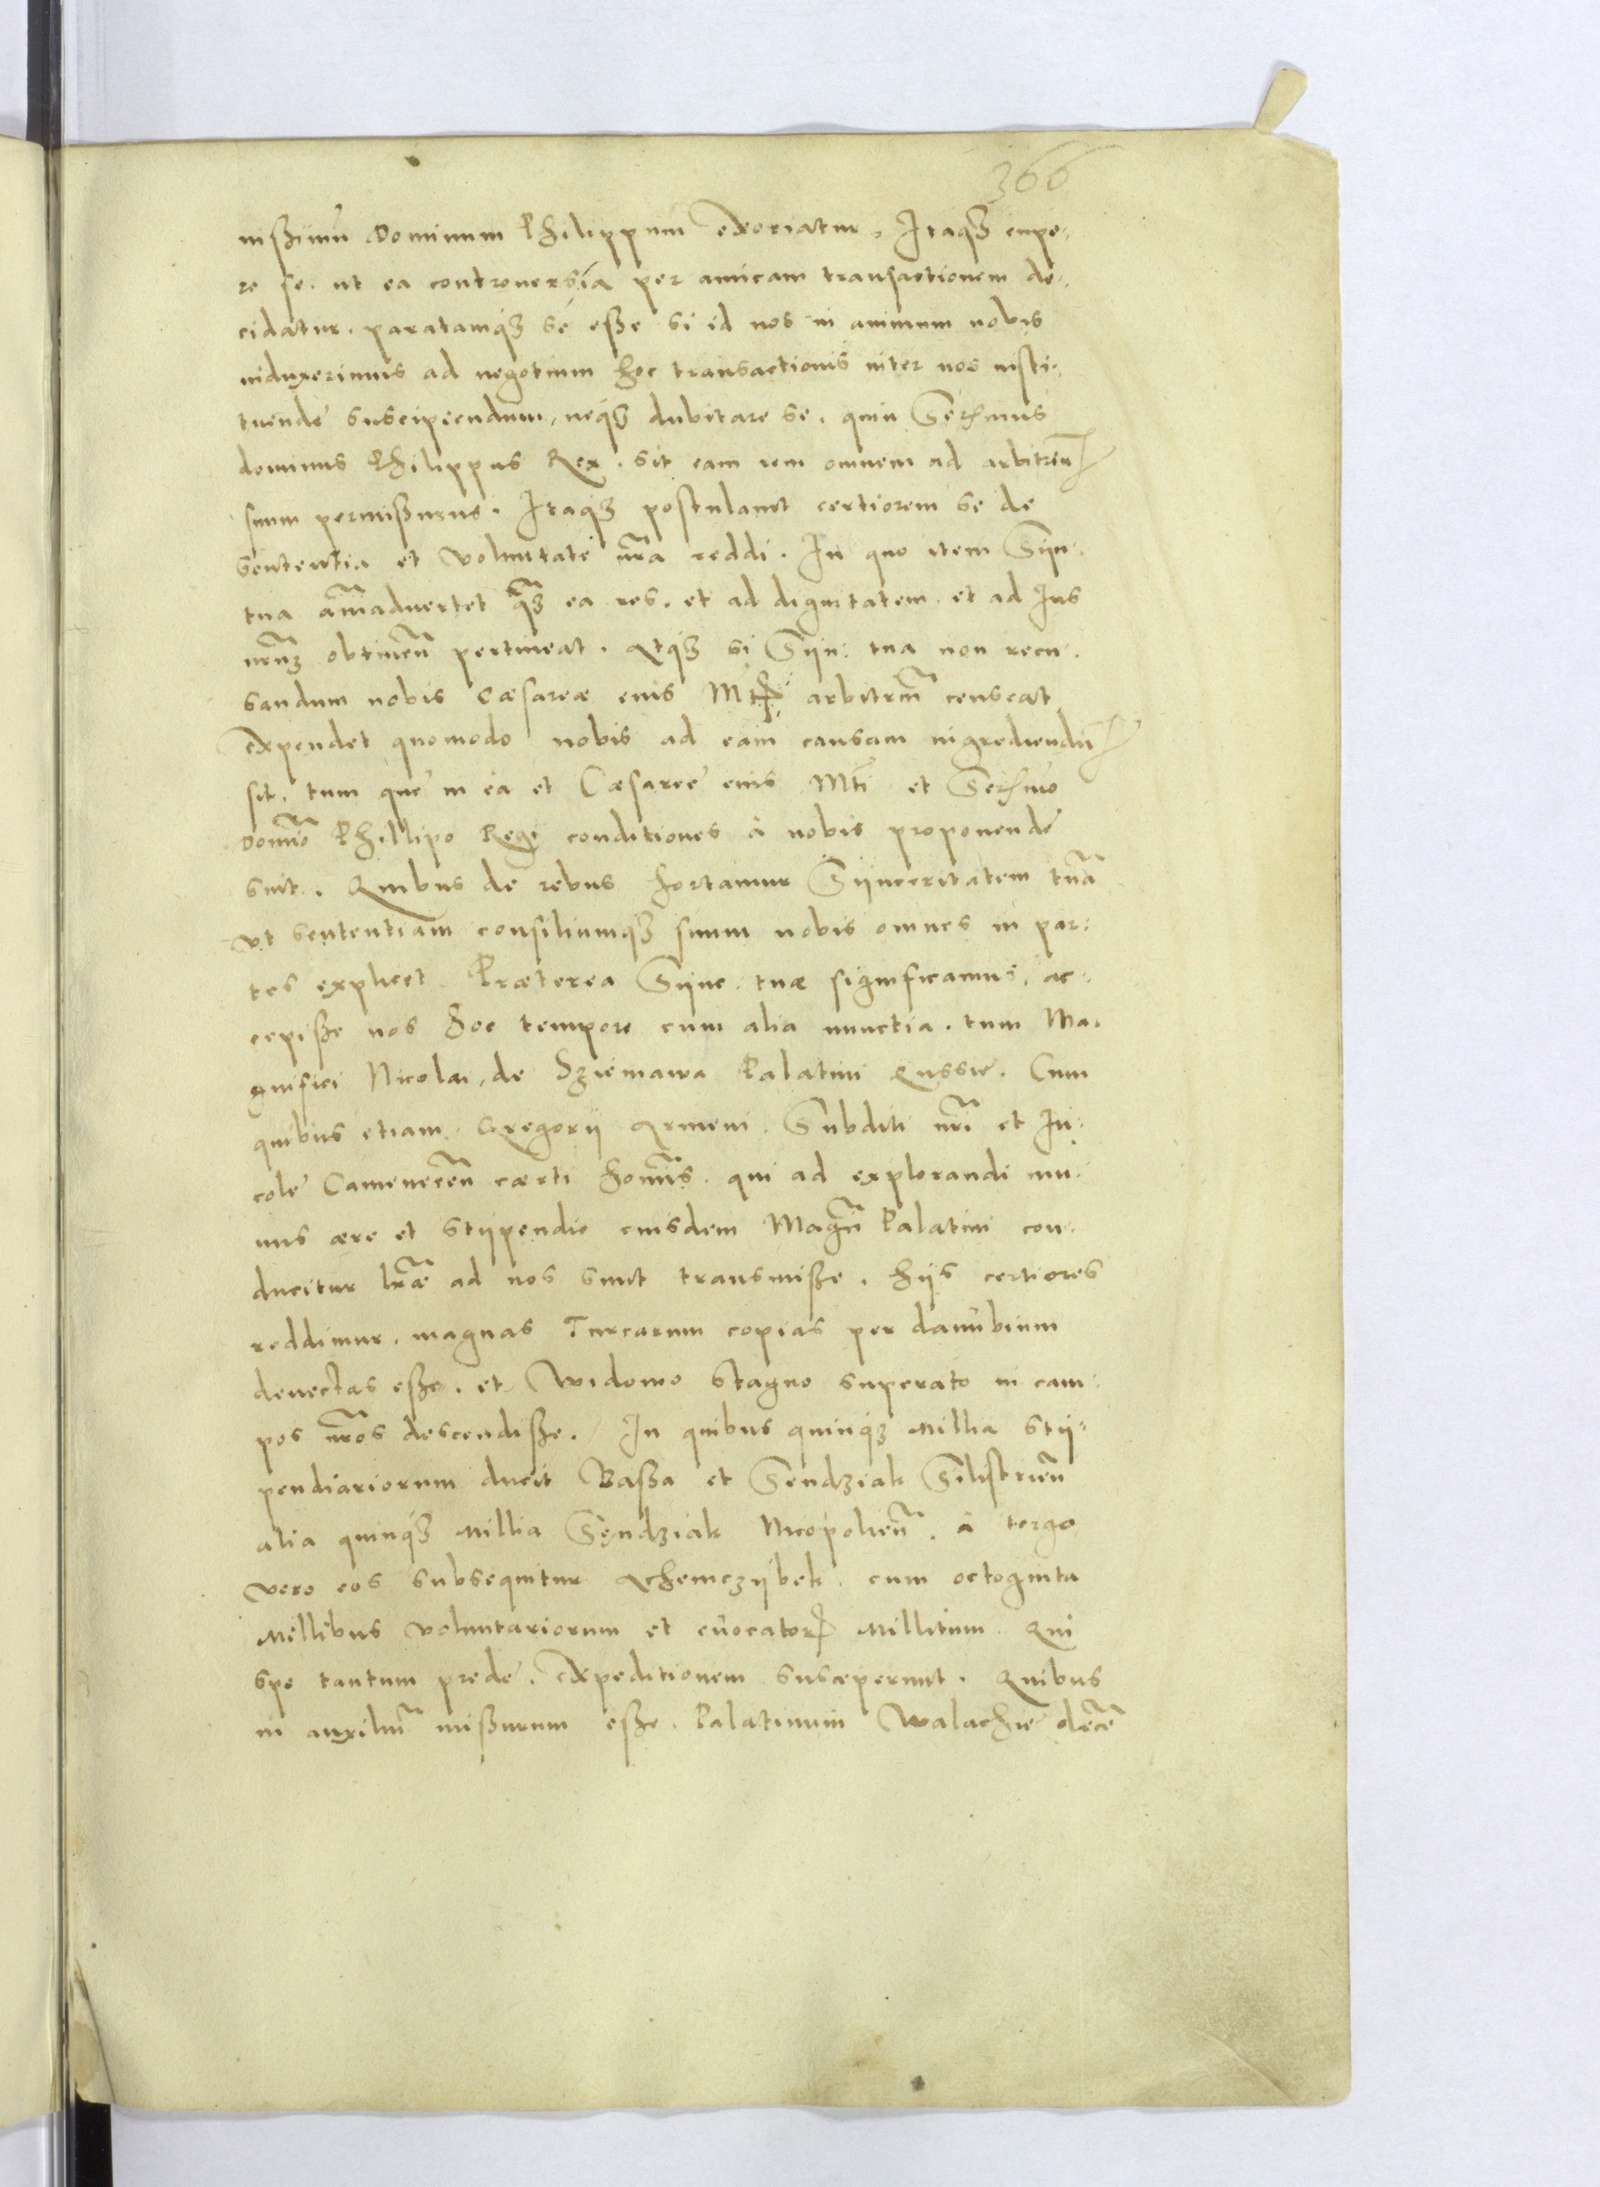 366
nissimu Dominum Philippum exoriatur. Itaq3 cupe-
re se. ut ea controuersia per amicam transactionem de-
cidatur. paratamq3 se esse si id nos in animum nobis
induxerimus ad negotium hoc transactionis inter nos insti-
tuende suscipiendum, neq3 dubitare se. quin Serhmus
dominus Philippus Rex. sit eam rem omnem ad arbitriu
suum permissurus. Itaq3 postulauit certiorem se de
sententia et voluntate nra reddi. In quo item Syn:
tua aiaduertet q3 ea res. et ad dignitatem et ad Ius
nrm obtinen pertineat. Atq3 si Syn: tua non recu-
sandum nobis Cæsareæ eius Mtis arbitriu censeat
expendet quomodo nobis ad eam causam ingrediendu
sit. tum que in ea et Cæsaree eius Mti et Serhmo
Domino Phillipo Regi conditiones à nobis proponende
sint. Quibus de rebus hortamur Synceritatem tua
vt sententiam consiliumq3 suum nobis omnes in par-
tes explicet. Præterea Sync. tuæ significamus, ac-
cepisse nos hoc tempore cum alia nunctia. tum Ma-
gnifici Nicolai, de Sziemawa Palatini Russie. Cum
quibus etiam Gregorij Armeni Subditi nri et In-
cole Camenecen cærti hominis. qui ad explorandi mu-
nus ære et stijpendio eiusdem Magn Palatini con-
ducitur lræ ad nos sunt transmisse. hijs certiores
reddimur. magnas Turcarum copias per danubium
deuectas esse. et Widowo stagno superato in cam-
pos nros descendisse. In quibus quinq3 Millia stij-
pendiariorum ducit Bassa et Sendziak Silistrien
alia quinq3 Millia Sendziak Nicopolien. à tergo
vero eos subsequitur Achemczijbek. cum octoginta
Millibus voluntariorum et euocator Millitum Qui
spe tantum prede. expeditionem susceperunt. Quibus
in auxiliu missurum esse. Palatinum Walachie